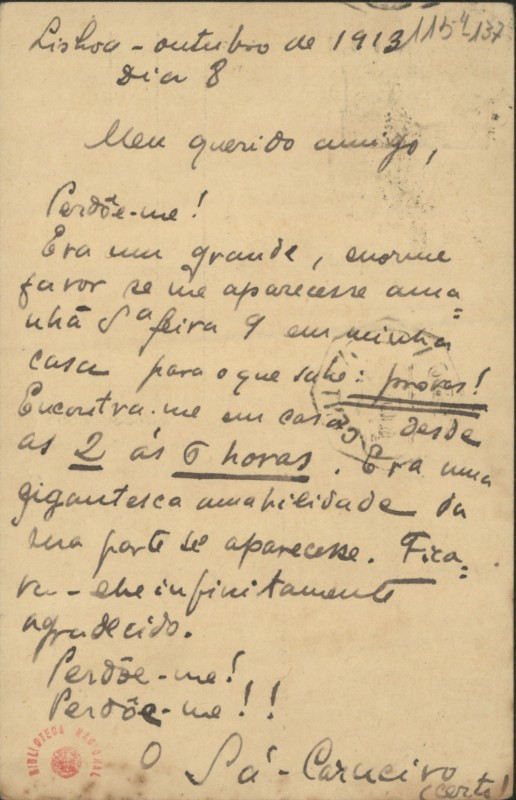 Lisboa - outubro de 1913
115⁴-137
Dia 8
Meu querido amigo,
Perdõe-me!
Era um grande, enorme
favor se me aparecesse ama=
nhã 5ª feira 9 em minha
casa para o que sabe: provas!
Encontra-me em casa desde
as 2 ás 6 horas. Era uma
gigantesca amabilidade da
sua parte se aparecesse. Fica=
va-lhe infinitamente
agradecido.
Perdõe-me!
Perdõe-me!!
O Sá-Carneiro
(certo!
BIBLIOTECA NACIONAL